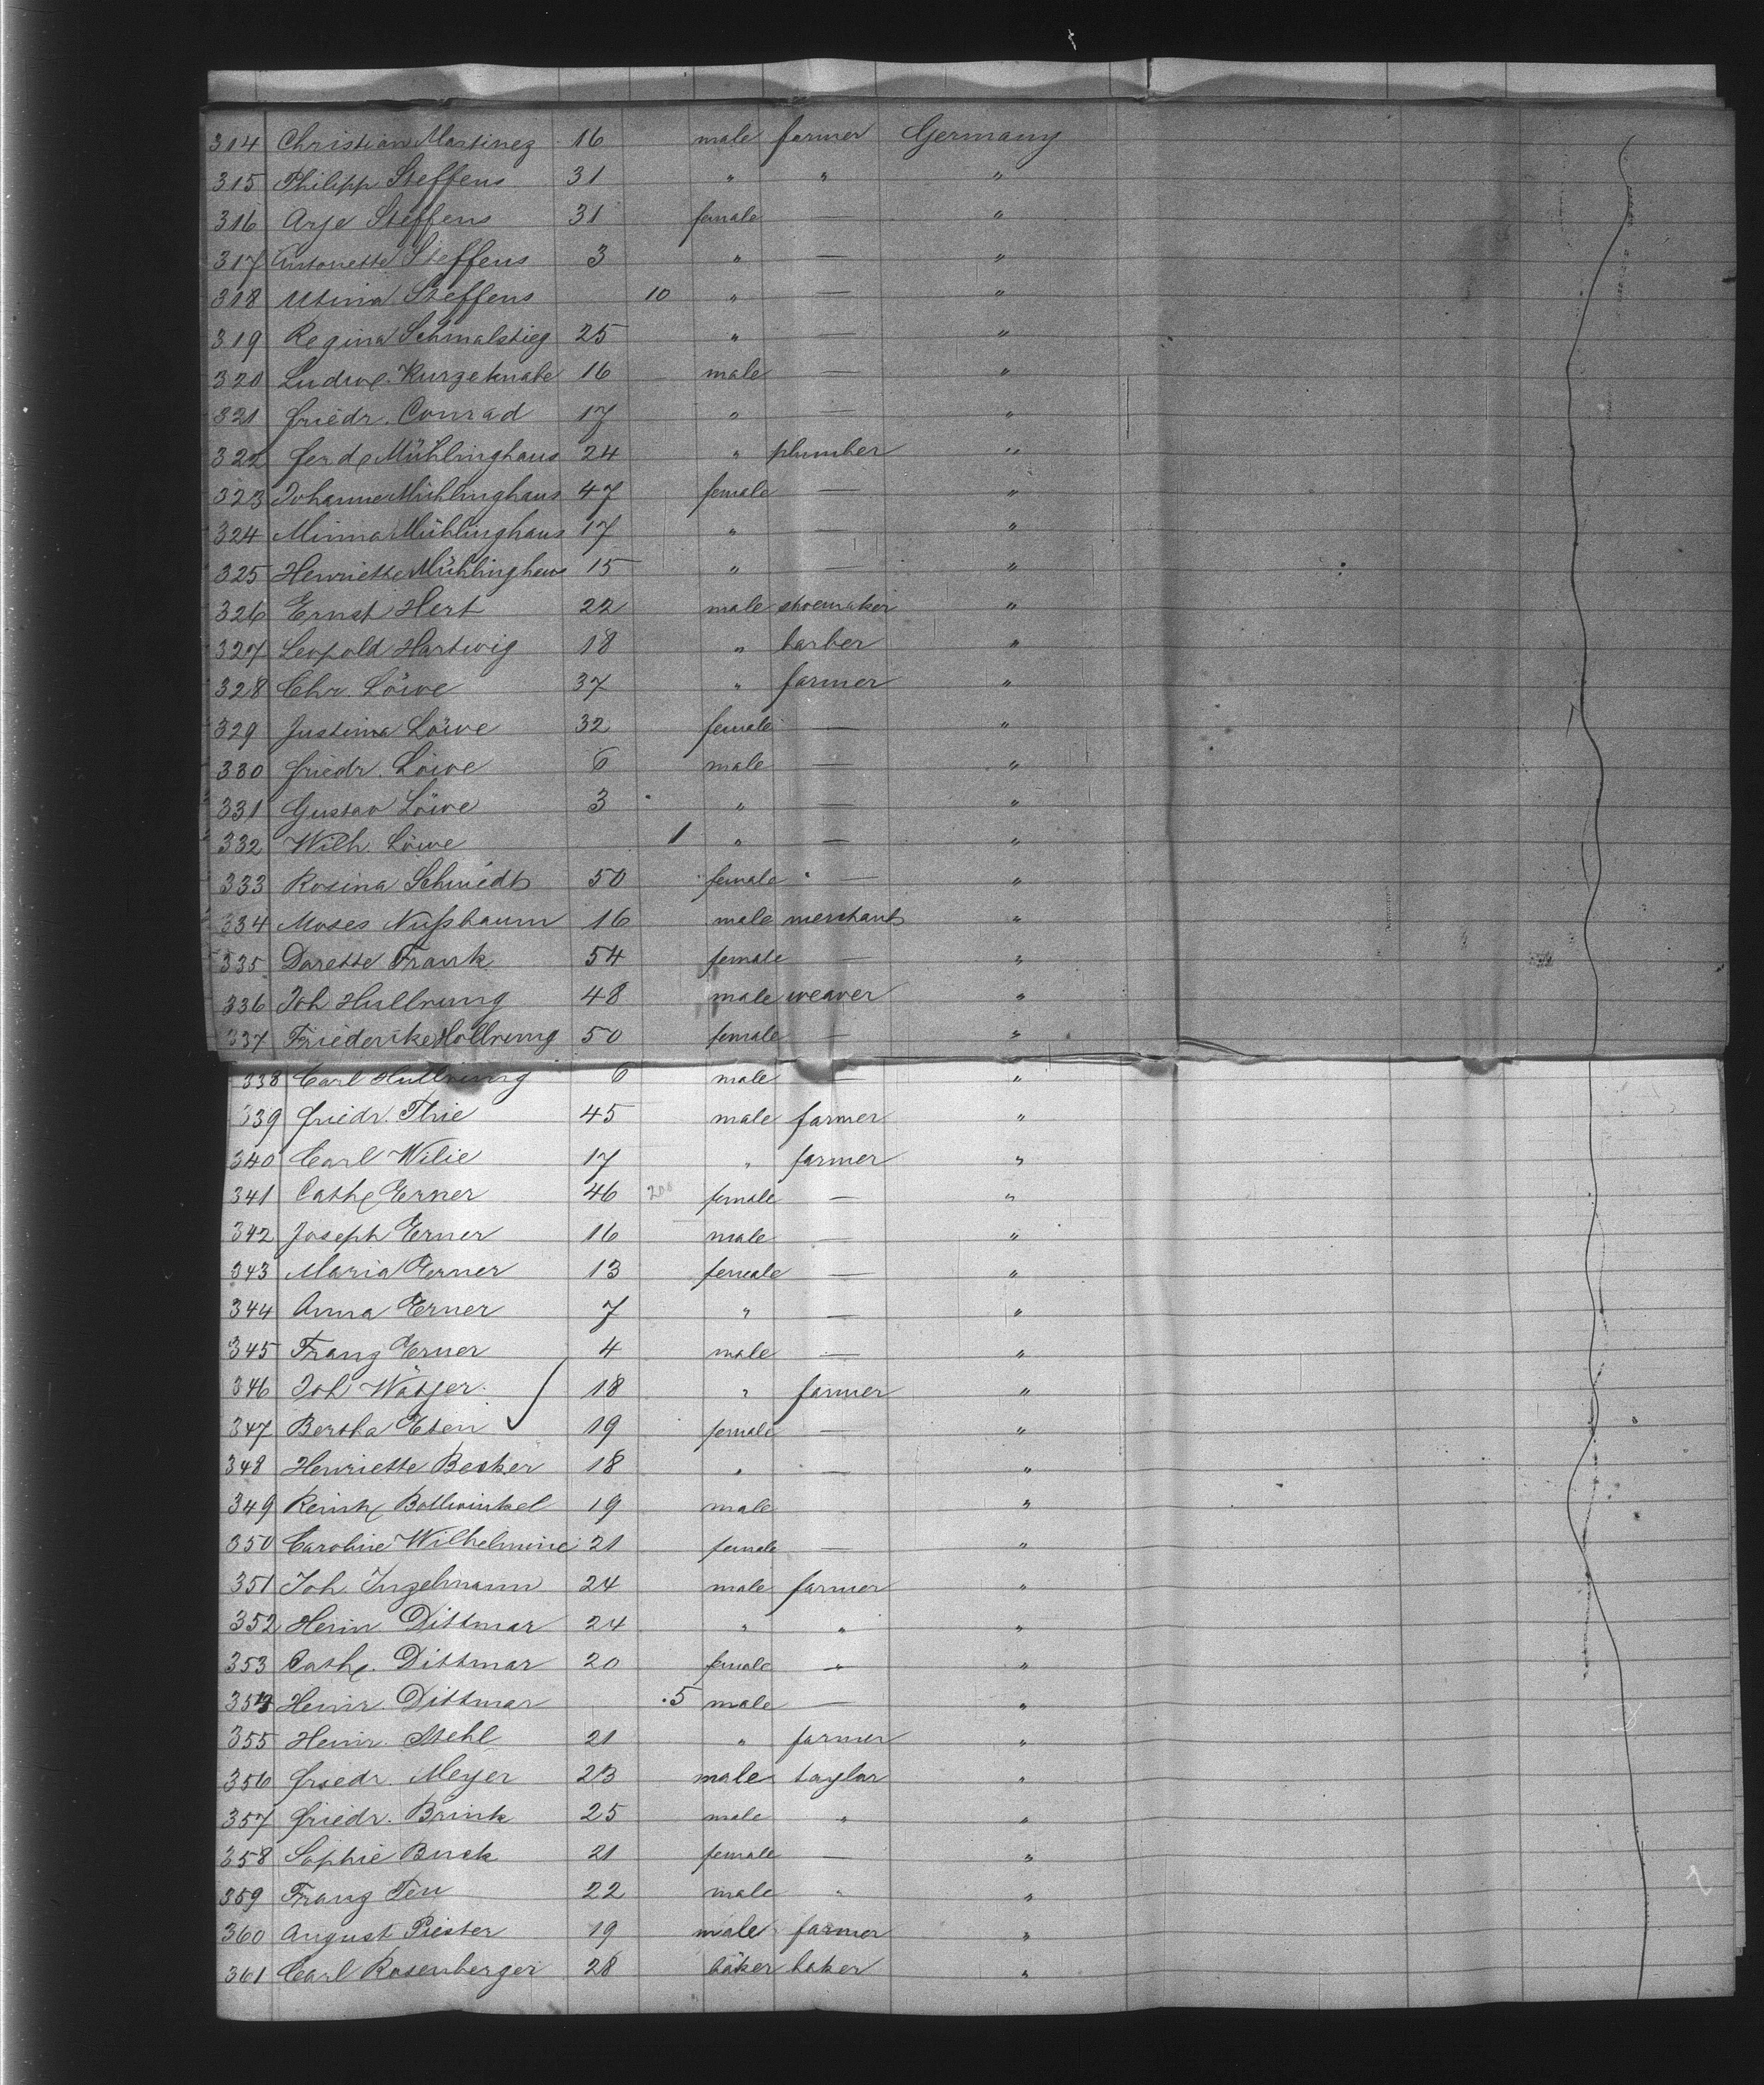 314 Christian Martinez 16 male farmer Germany
315 Philipp Steffens 31 " " "
316 Arje Steffens 31 female — "
317 Antonette Steffens 3 " — "
318 Utina Steffens 10 " — "
319 Regina Schmalstieg 25 " — "
320 Ludw. Kurzeknabe 16 male — "
321 Friedr. Conrad 17 " — "
322 Ferd. Mühlinghaus 24 " plumber "
323 Johanne Mühlinghaus 47 female — "
324 Minna Mühlinghaus 17 " — "
325 Henriette Mühlinghaus 15 " — "
326 Ernst Hert 22 male shoemaker "
327 Leopold Hartwig 18 " barber "
328 Chr. Löwe 37 " farmer "
329 Justina Löwe 32 female — "
330 Friedr. Löwe 6 male — "
331 Gustav Löwe 3 " — "
332 Wilh. Löwe 1 " — "
333 Rosina Schmidt 50 female — "
334 Moses Nußbaum 16 male merchant "
335 Dorette Frank 54 female — "
336 Joh Hullrung 48 male weaver "
337 Friederike Hollrung 50 female — "
338 Carl Hullrung 6 male — "
339 Friedr. Thie 45 male farmer "
340 Carl Wilie 17 " farmer "
341 Cath. Erner 46 female — "
342 Joseph Erner 16 male — "
343 Maria Erner 13 female — "
344 Anna Erner 7 " — "
345 Franz Erner 4 male — "
346 Joh Wätjer 18 " farmer "
347 Bertha Eben 19 female — "
348 Henriette Becker 18 " — "
349 Reinh. Bollwinkel 19 male "
350 Caroline Wilhelmine 21 female — "
351 Joh Ingelmann 24 male farmer "
352 Heinr Dittmar 24 " " "
353 Cath. Dittmar 20 female — "
354 Heinr. Dittmar 5 male — "
355 Heinr. Stehl 21 " farmer "
356 Friedr. Meyer 23 male taylor "
357 Friedr. Brink 25 male " "
358 Sophie Buck 21 female — "
359 Franz 22 male " "
360 August Piester 19 male farmer "
361 Carl Rosenberger 28 bäker baker "